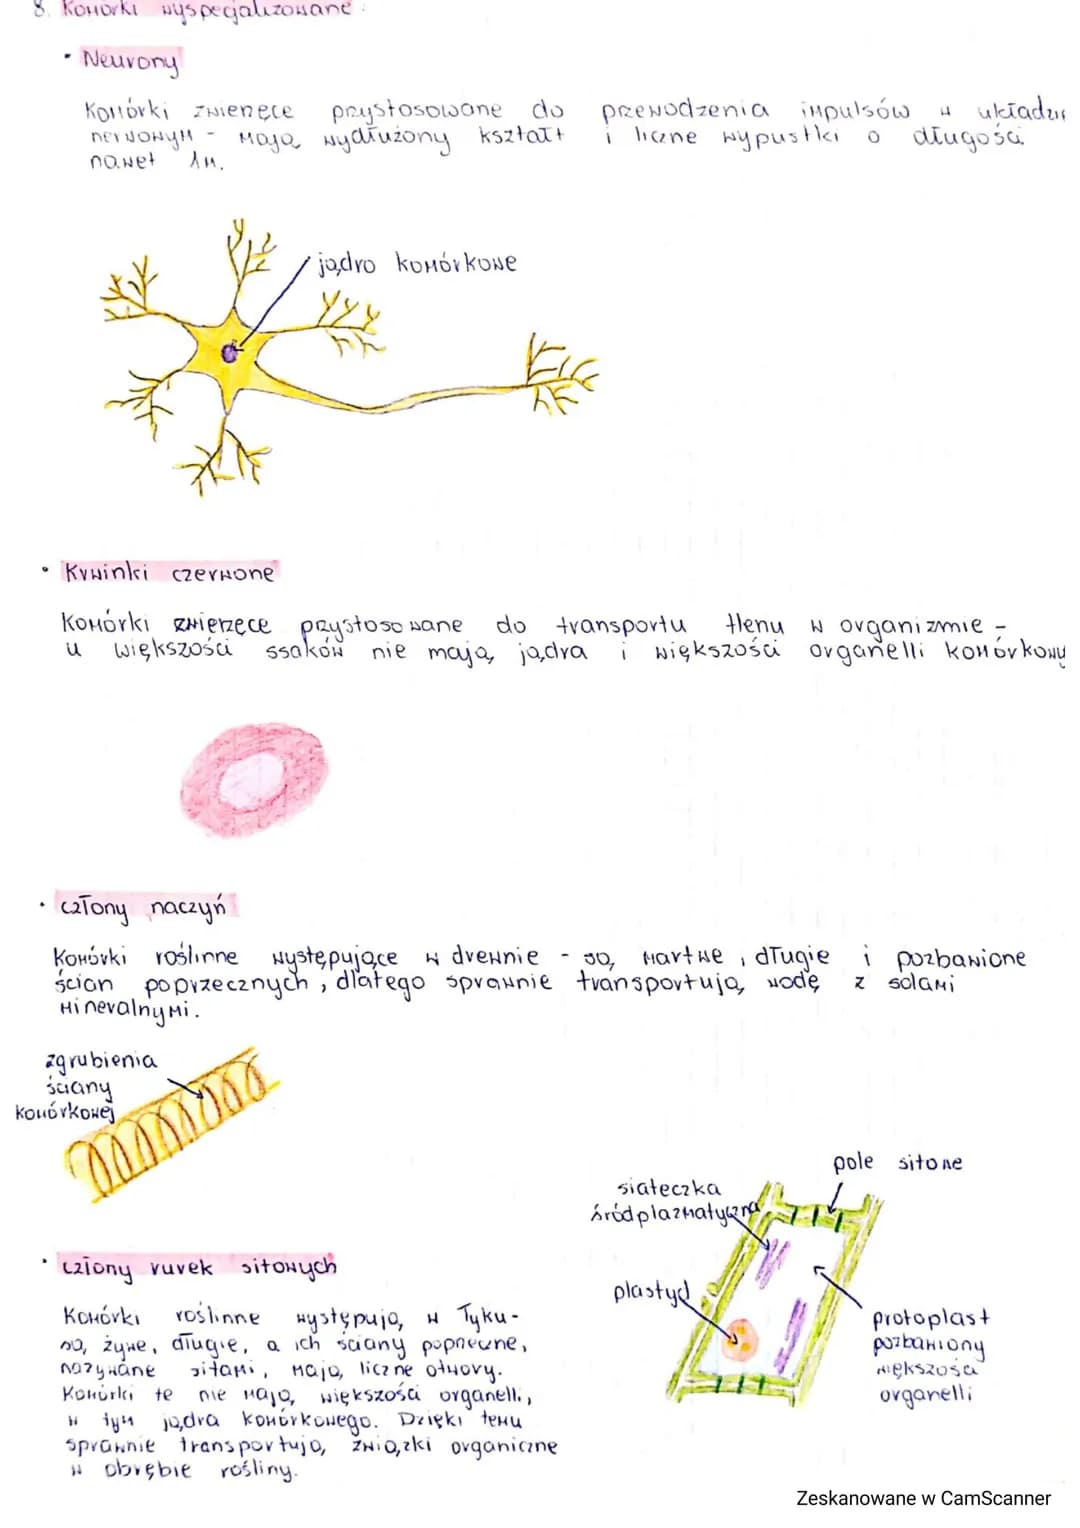 8. Komórki wyspecjalizowane:
• Neurony
Komórki zwierzęce przystosowane do przewodzenia impulsów w układzie
nerwowym - mają wydłużony kształt i liczne wypustki o długości
nawet 1m.
jądro komórkowe
• Krwinki czerwone
Komórki zwierzęce przystosowane do transportu tlenu w organizmie -
u większości ssaków nie mają jądra i większości organelli komórkowy
• człony naczyń
Komórki roślinne występujące w drewnie - są martwe, długie i pozbawione
ścian poprzecznych, dlatego sprawnie transportują wodę z solami
mineralnymi.
zgrubienia
ściany
komórkowej
pole sitowe
siateczka
śródplazmatyczna
plastyd
protoplast
pozbawiony
większości
organelli
• człony rurek sitowych
Komórki roślinne występują w łyku -
są żywe, długie, a ich ściany poprzeczne,
nazywane sitami, mają liczne otwory.
Komórki te nie mają większości organelli,
w tym jądra komórkowego. Dzięki temu
sprawnie transportują związki organiczne
w obrębie rośliny.
Zeskanowane w CamScanner